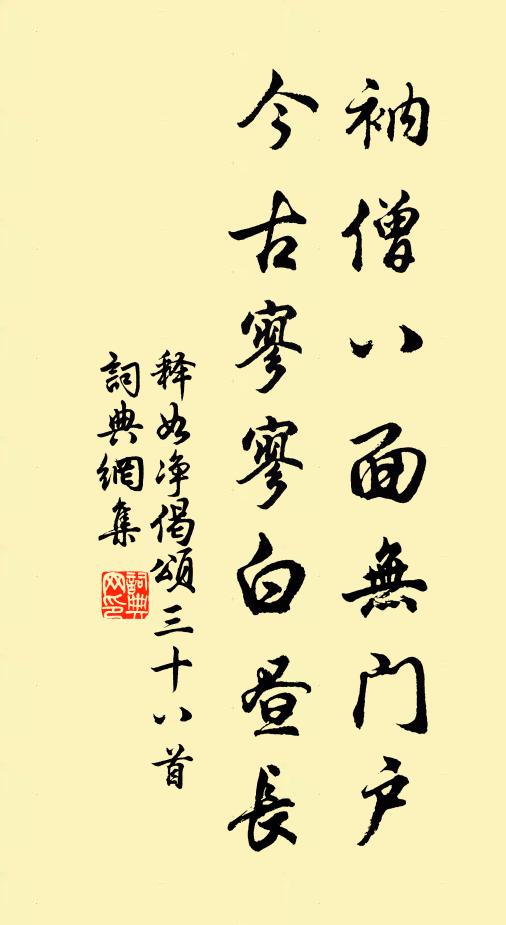 衲僧八面無門户
今古寥寥白昼長
释如净偈頌三十八首
詞典網集
詞典网印